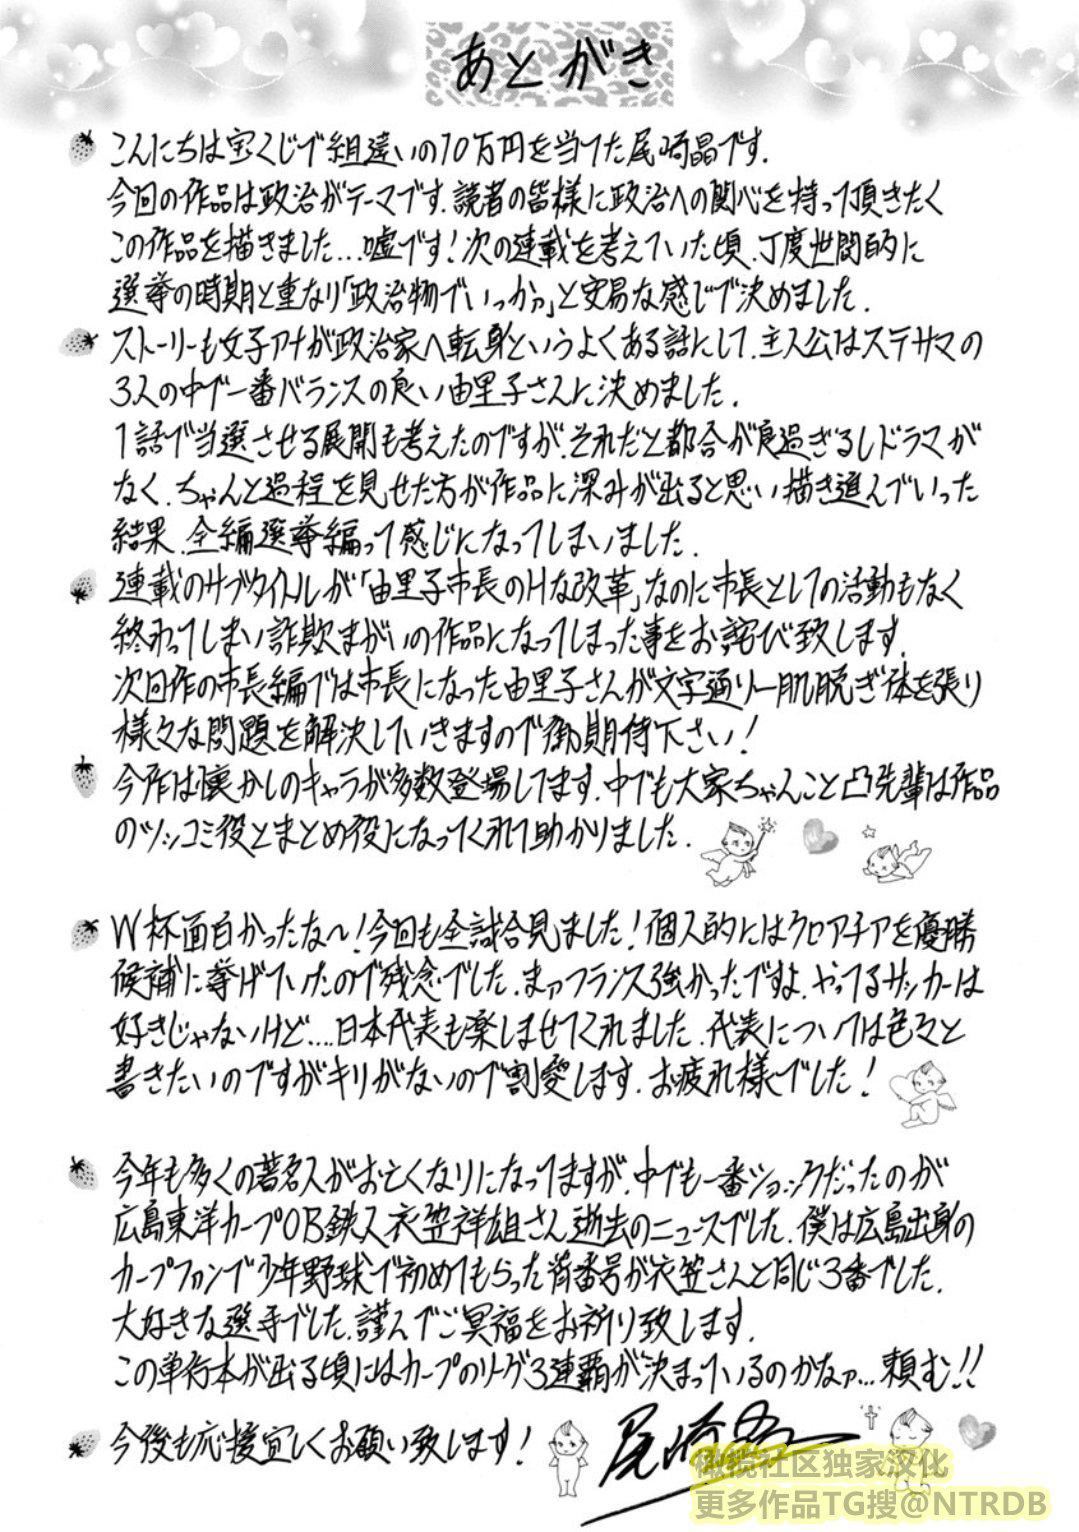 あとがき
こんにちは宝くじで組違いの10万円を当てた尾崎晶です.
今回の作品は政治がテーマです.読者の皆様に政治への関心を持って頂きたく
この作品を描きました...嘘です!次の連載を考えていた頃、丁度世間的に
選挙の時期と重なり「政治物でいっか。」と安易な感じで決めました.
ストーリーも女子アナが政治家へ転身というよくある話にして.主人公はステサマの
3人の中で一番バランスの良い由里子さんに決めました.
1話で当選させる展開も考えたのですが.それだと都合が良過ぎるしドラマが
なく.ちゃんと過程を見せた方が作品に深みが出ると思い描き進んでいった
結果.全編選挙編って感じになってしまいました.
連載のサブタイトルが「由里子市長のHな改革」なのに市長としての活動もなく
終わってしまい詐欺まがいの作品になってしまった事をお詫び致します.
次回作の市長編では市長になった由里子さんが文字通り一肌脱ぎ体を張り
様々な問題を解決していきますので御期待下さい!
今作は懐かしのキャラが多数登場してます.中でも大家ちゃんこと凸先輩は作品
のツッコミ役とまとめ役になってくれて助かりました.
W杯面白かったな〜!今回も全試合見ました!個人的にはクロアチアを優勝
候補に挙げていたので残念でした.まァフランス強かったですよ.やってるサッカーは
好きじゃないけど....日本代表も楽しませてくれました.代表については色々と
書きたいのですがキリがないので割愛します.お疲れ様でした!
今年も多くの著名人がお亡くなりになってますが.中でも一番ショックだったのが
広島東洋カープOB鉄人衣笠祥雄さん逝去のニュースでした.僕は広島出身の
カープファンで少年野球で初めてもらった背番号が衣笠さんと同じ3番でした.
大好きな選手でした.謹んでご冥福をお祈り致します.
この単行本が出る頃にはカープのリーグ3連覇が決まっているのかなァ...頼む!!
今後も応援宜しくお願い致します!
尾崎晶
橄榄社区独家汉化
更多作品TG搜@NTRDB